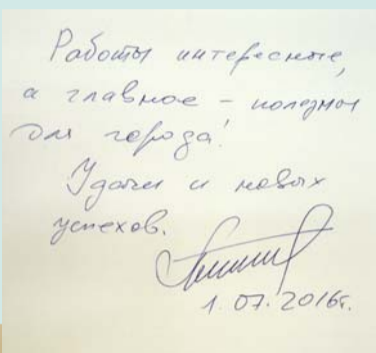 Работы интересные,
а главное – полезны
для города!
Удачи и новых
успехов.
1.07.2016г.